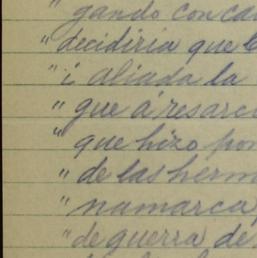 " gando con ca
" decidiria que C
" i aliada la
" que á resarci
" que hizo por
" de las herm
" namarca,
" de guerra de